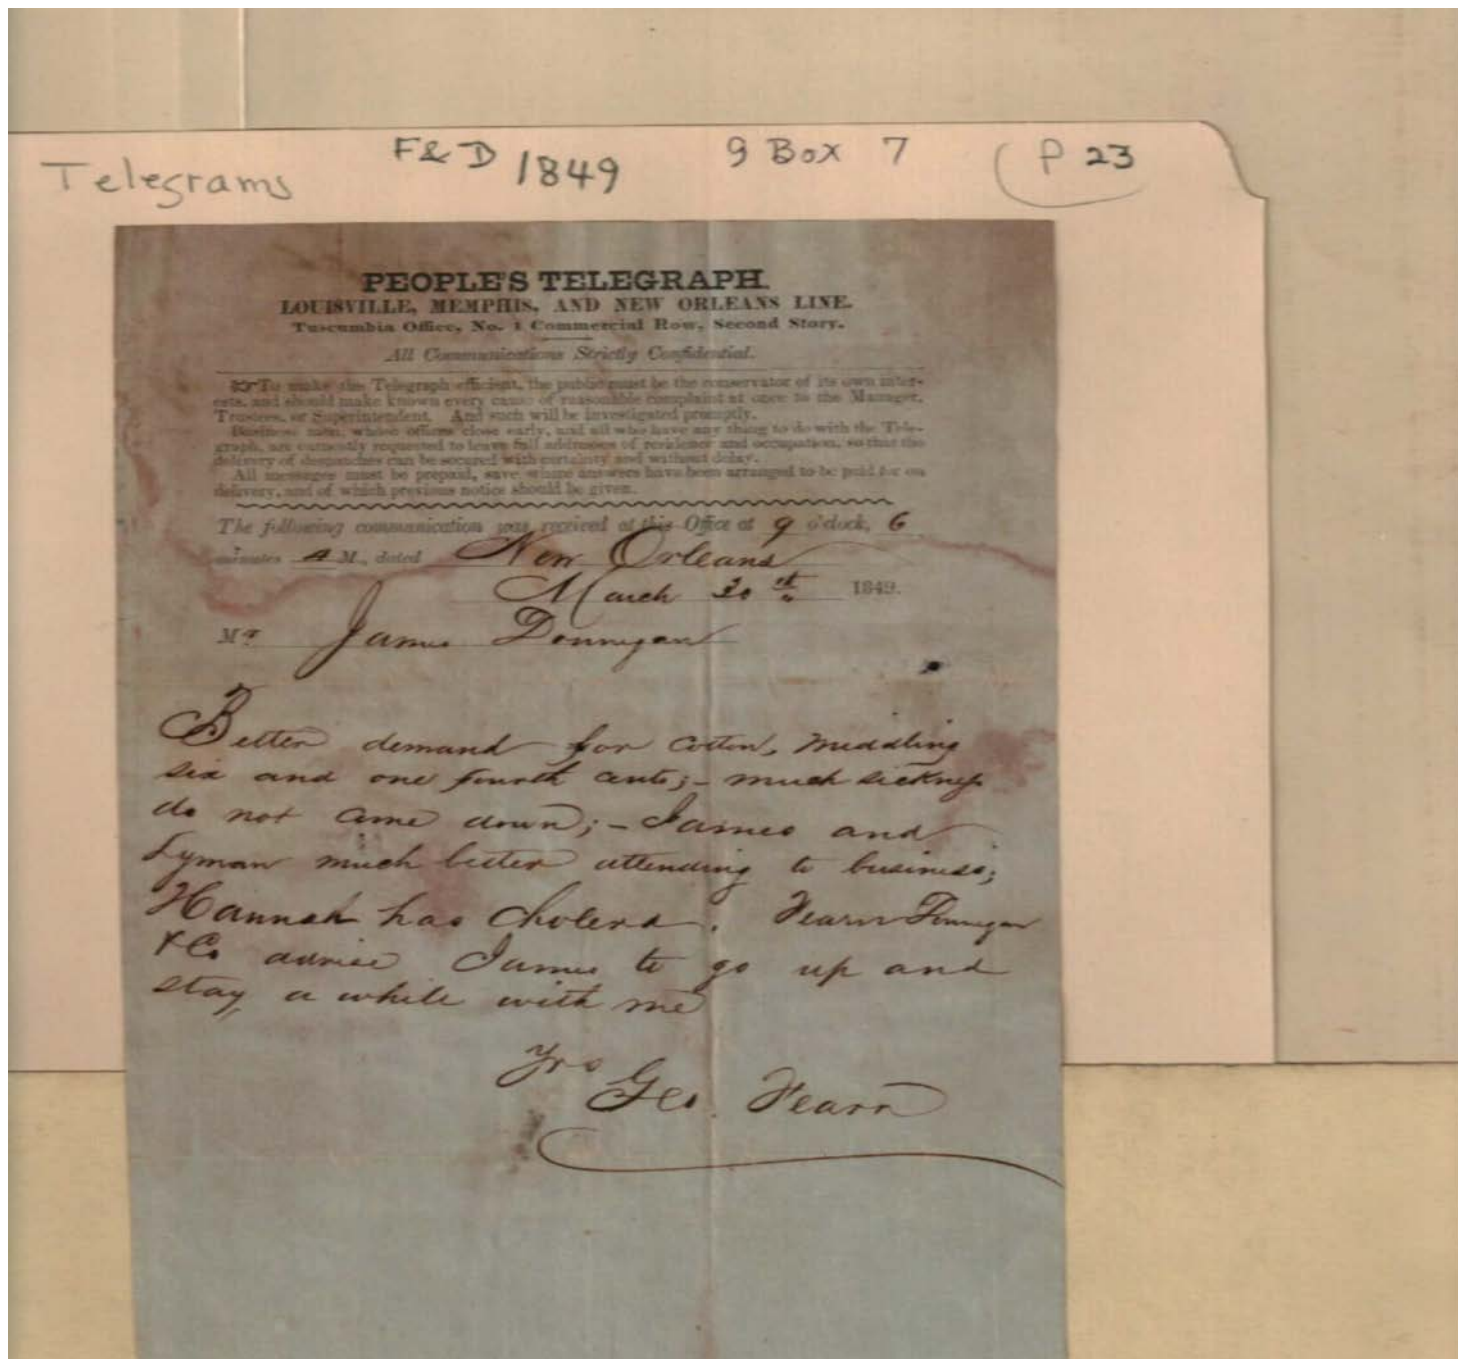 Telegrams F&D 1849 9 Box 7 P 23
PEOPLE'S TELEGRAPH.
LOUISVILLE, MEMPHIS, AND NEW ORLEANS LINE.
Tuscumbia Office, No. 1 Commercial Row, Second Story.
All Communications Strictly Confidential.
☞To make the Telegraph efficient, the public must be the conservator of its own inter-
ests, and should make known every cause of reasonable complaint at once to the Manager,
Trustees, or Superintendent. And such will be investigated promptly.
Business men, whose offices close early, and all who have any thing to do with the Tele-
graph, are earnestly requested to leave full addresses of residence and occupation, so that the
delivery of despatches can be secured with certainty and without delay.
All messages must be prepaid, save where answers have been arranged to be paid for on
delivery, and of which previous notice should be given.
The following communication was received at this Office at 9 o'clock, 6
minutes A M., dated New Orleans
March 30th 1849.
Mr James Donnegan
Better demand for cotton, middling
six and one fourth cents;- much sickness
do not come down;- James and
Lyman much better attending to business;
Hannah has cholera. Fearn
& Co advise James to go up and
stay a while with me
Yrs
Geo. Fearn